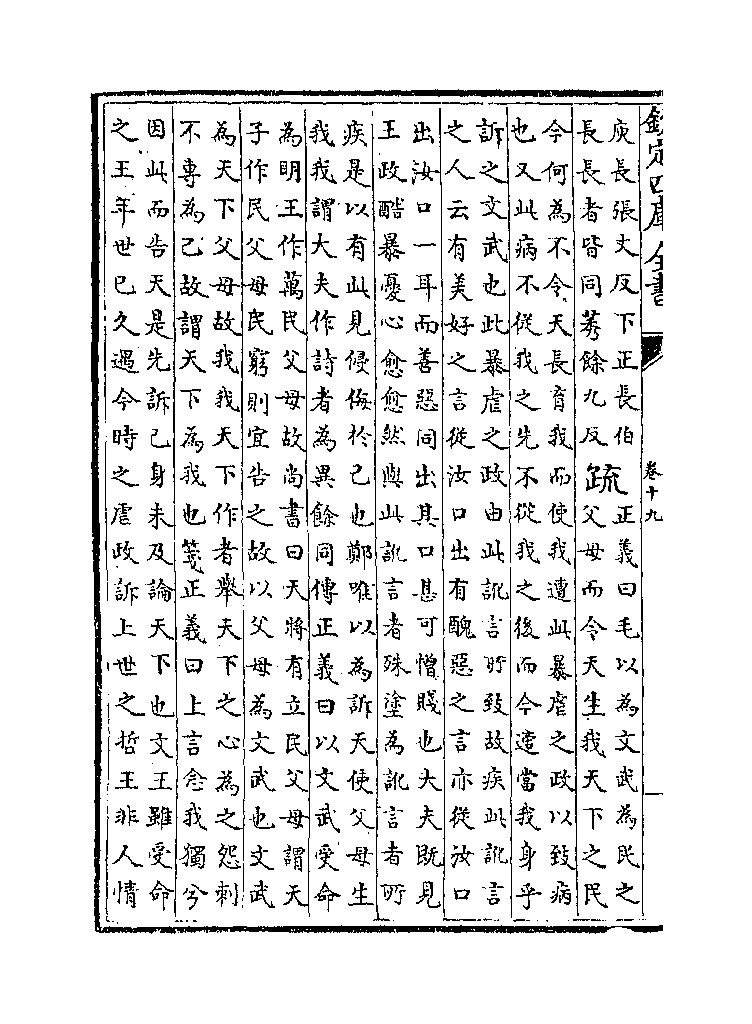 欽定四庫全書
卷十九
庾長張丈反下正長伯
長長者皆同莠餘九反
疏
正義曰毛以為文武為民之
父母而令天生我天下之民
今何為不令天長育我而使我遭此暴虐之政以致病
也又此病不從我之先不從我之後而今遭當我身乎
訴之文武也此暴虐之政由此訛言所致故疾此訛言
之人云有美好之言從汝口出有醜惡之言亦從汝口
出汝口一耳而善惡同出其口甚可憎賤也大夫既見
王政酷暴憂心愈愈然與此訛言者殊塗為訛言者所
疾是以有此見侵侮於己也鄭唯以為訴天使父母生
我我謂大夫作詩者為異餘同傳正義曰以文武受命
為明王作萬民父母故尚書曰天將有立民父母謂天
子作民父母民窮則宜告之故以父母為文武也文武
為天下父母故我我天下作者舉天下之心為之怨刺
不專為己故謂天下為我也箋正義曰上言念我獨兮
因此而告天是先訴己身未及論天下也文王雖受命
之王年世已久遇今時之虐政訴上世之哲王非人情